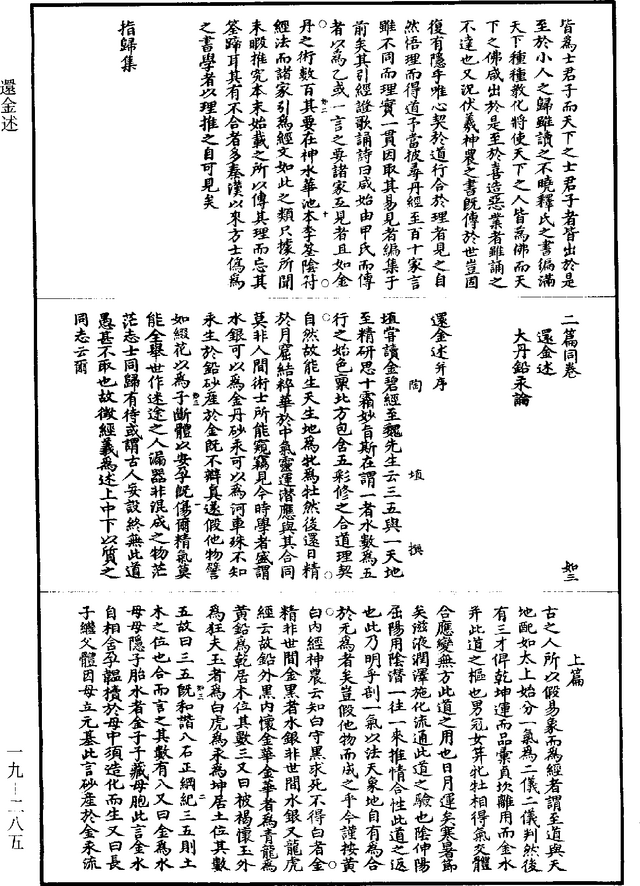 還金述
一九—二八五
皆為士君子而天下之士君子者皆出於是
至於小人之歸雖讀之不曉釋氏之書編滿
天下種種教化將使天下之人皆為佛而天
下之佛咸出於是至於喜造惡業者雖誦之
不達也又況伏羲神農之書既傳於世豈因
復有隱乎唯心契於道行合於理者見之自
然悟理而得道予當披尋丹經至百十家言
雖不同而理實一貫因取其易見者編集于
前矣其引經證歌誦詩曰咸始由甲氏而傳
者以為乙或一言之要諸家互見者且如金
丹之術數百其要在神水華池本李筌陰符
經法而諸家引為經文如此之類只據所聞
未暇推究本末始載之所以傳其理而忘其
筌蹄耳其有不合者多秦漢以來方士偽為
之書學者以理推之自可見矣
指歸集
二篇同卷 如三
還金述
大丹鉛汞論
還金述并序
陶埴撰
埴嘗讀金碧經至魏先生云三五與一天地
至精研思十霜妙旨斯在謂一者水數為五
行之始色稟北方包含五彩修之合道理契
自然故能生天生地為牝為牡然後還日精
於月窟結粹華於中氣靈運潛應與其合同
莫非人間術士所能窺竊見今時學者盛謂
水銀可以為金丹砂汞可以為河車殊不知
汞生於鉛砂產於金既不辯真遂假他物譬
如綴花以為子斷體以安孕既傷爾精氣莫
能全舉世作迷途之人漏器非混成之物茫
茫志士同歸有待或謂古人妄設終無此道
愚甚不取也故徵經義為述上中下以質之
同志云爾
上篇
古之人所以假易象而為經者謂至道與天
地配如太上始分一氣為二儀二儀判然後
有三才俾乾坤運而品彙貞坎離用而金水
并此道之樞也男冠女笄牝牡相得氣交體
合應變無方此道之用也日月運矣寒暑節
矣滋液潤澤施化流通此道之驗也陰伸陽
屈陽用陰潛一往一來推情合性此道之返
也此乃明乎剖一氣以法天象地自有為合
於元為者矣豈假他物而成之乎今謹按黃
白內經神農云知白守黑求死不得白者金
精非世間金黑者水銀非世間水銀又龍虎
經云故鉛外黑內懷金華金華者為青龍為
黃鉛為乾居木位其數三又曰被褐懷玉外
為狂夫玉者為白虎為汞為坤居土位其數
五故曰三五既和諧八石正綱紀三五則土
木之位也合而言之其數有八又曰金為水
母母隱子胎水者金子子藏母胞此言金水
自相含孕韞櫝於母中須造化而生又曰長
子繼父體因母立元基此言砂產於金汞流